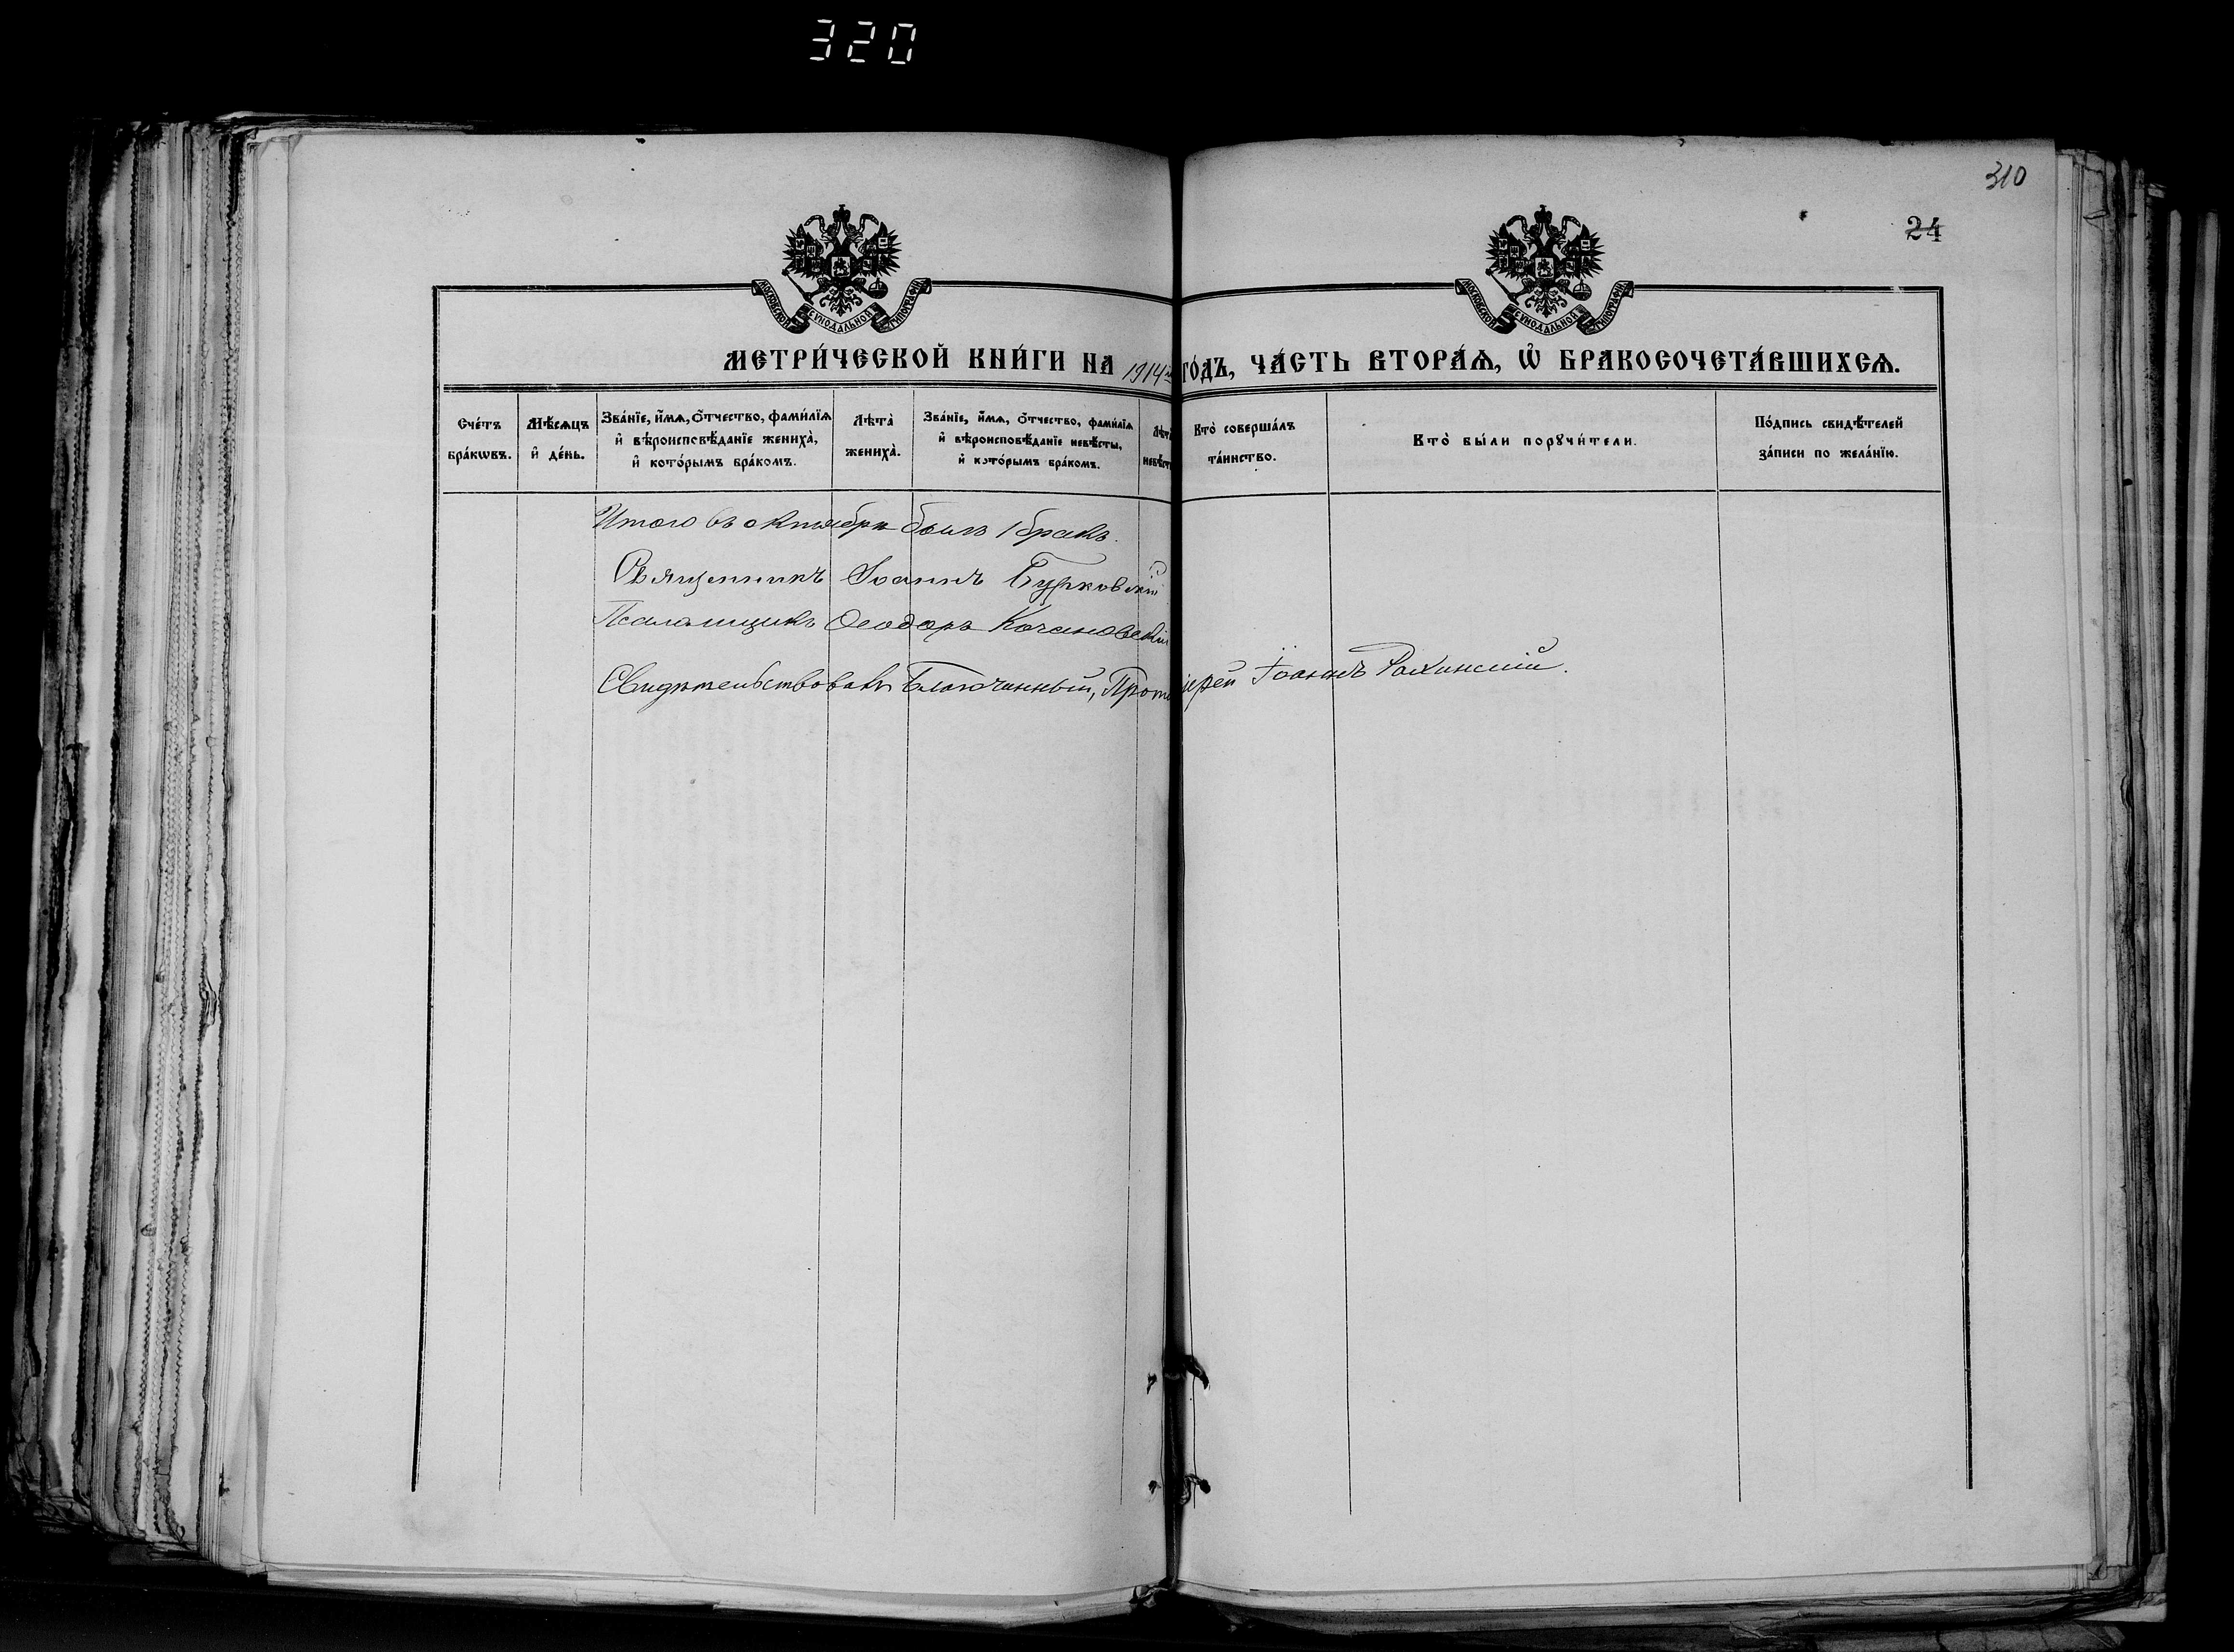 320
310
24
МОСКОВСКОЙ СѴНОДАЛЬНОЙ ТИПОГРАФІИ
МОСКОВСКОЙ СѴНОДАЛЬНОЙ ТИПОГРАФІИ
МЕТРИ́ЧЕСКОЙ КНИ́ГИ НА 1914 ГО́ДЪ, ЧА́СТЬ ВТОРА́Ѧ, Ѡ҆ БРАКОСОЧЕТА́ВШИХСѦ.
Сче́тъ бра́кѡвъ.
Мѣ́сѧцъ и҆ де́нь.
Зва́нїе, и҆́мѧ, ѻ҆́тчество, фами́лїѧ и҆ вѣроисповѣ́данїе жениха̀, и҆ кото́рымъ бра́комъ.
Лѣта̀ жениха̀.
Зва́нїе, и҆́мѧ, ѻ҆́тчество, фами́лїѧ и҆ вѣроисповѣ́данїе невѣ́сты, и҆ кото́рымъ бра́комъ.
Лѣта̀ невѣст
Кто̀ соверша́лъ та́инство.
Кто̀ бы́ли порꙋчи́тели.
По́дпись свидѣ́телей за́писи по жела́нїю.
Итого въ октябрѣ былъ 1 бракъ.
Священникъ Іоаннъ Бурковскій
Псаломщикъ Ѳеодоръ Качановскій
Свидѣтельствовалъ Благочинный, Протоіерей Іоаннъ